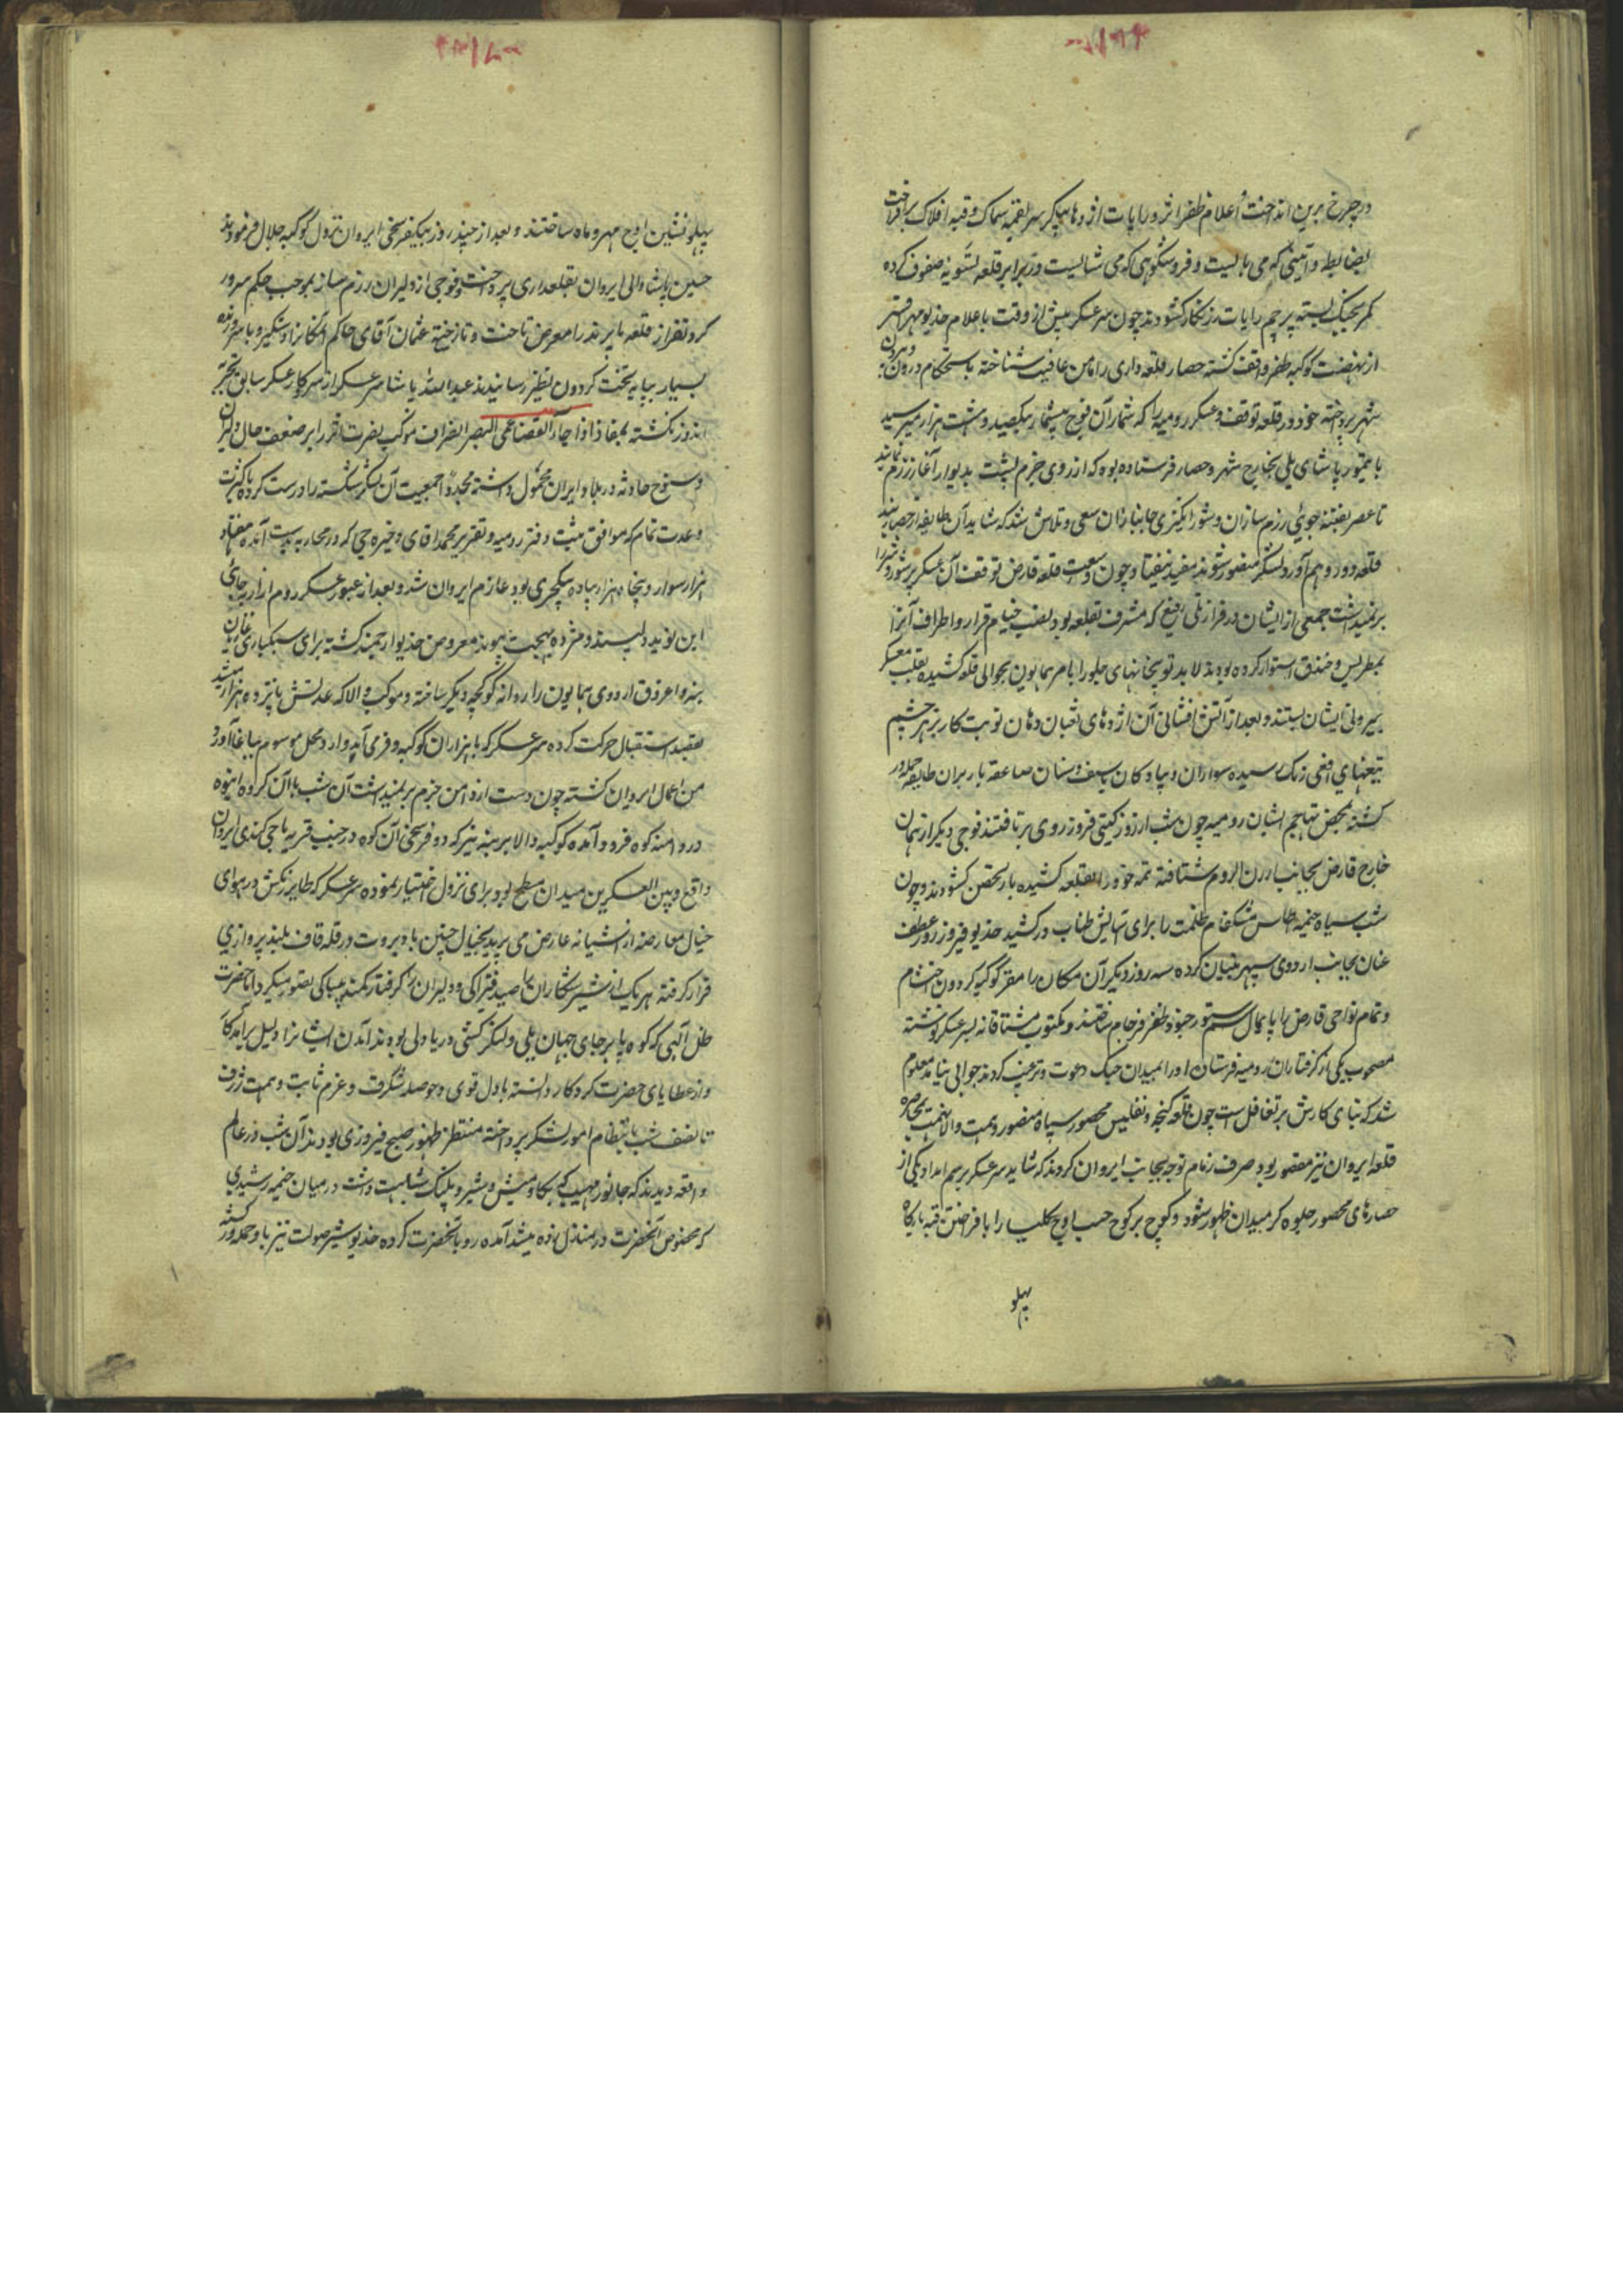 در چرخ برین انداخت اعلام ظفر اثر و رایات اژدها پیکر سر بقمه سماک و قبه افلاک برافراخت
بضابطه و آئینی که می بایست و فر و شکوهی که می شایست در برابر قلعه تسویه صفوف کرده
کمر بجنگ بسته پرچم رایات زرنگار کشودند چون سرعسکر پیش از وقت باعلام خدیو مهر افسر
از نهضت کوکبه ظفر واقف کشته حصار قلعه داری را مامن عافیت شناخته باستحکام درون و بیرون
شهر پرداخته خود در قلعه توقف و عسکر رومیه را که شمار آن فوج بیشمار بیکصد و شست هزار میرسید
با تیمور پاشای ملی بخارج شهر و حصار فرستاده بود که از روی حزم پشت بدیوار آغاز رزم نمایند
تا عصر بفتنه جوئی رزم سازان و شور انگیزی جانبازان سعی و تلاش شد که شاید آن طایفه از حصار بند
قلعه دور و هم آورد لشکر منصور شوند مفید نیفتاد و چون وسعت قلعه قارص توقف آن عسکر پر شور و شر را
بر نمیداشت جمعی از ایشان در فراز تلی رفیع که مشرف بقلعه بود نصب خیام قرار و اطراف آنرا
بمطریس و خندق استوار کرده بودند لابد توپخانهای جلو را بامر همایون بحوالی قلعه کشیده بقلب معسکر
بیرونی ایشان بستند و بعد از آتش افشانی آن اژدهای ثعبان دهان نوبت کار بزهر چشم
تیغهای افعی رنک رسیده سواران و پیادکان با سیف و سنان صاعقه بار بران طایفه حمله ور
کشته بمحض تهاجم ایشان رومیه چون شب از روز کیتی فروز روی بر تافتند فوجی دیگر از همان
خارج قارص بجانب ارزن الروم شتافته تتمه خود را بقلعه کشیده بار تحصن کشودند و چون
شب سیاه خیمه اطلس مشکفام ظلمت را برای آسایش طناب در کشید خدیو فیروز روز عطف
عنان بجانب اردوی سپهر بنیان کرده سه روز دیگر آن مکان را مقر کوکبه کردون احتشام
و تمام نواحی قارص را پایمال سم ستور جنود ظفر فرجام ساختند و مکتوب مشتاقانه بسرعسکر نوشته
مصحوب یکی از کرفتاران رومیه فرستاده او را بمیدان جنک دعوت و ترغیب کردند جوابی نیامد معلوم
شد که بنای کارش بر تغافل است چون قلعه کنجه و تفلیس محصور سپاه منصور و همت والا نهمت بمحاصره
قلعه ایروان نیز مقصور بود صرف زمام توجه بجانب ایروان کردند که شاید سرعسکر برسم امداد یکی از
حصارهای محصور جلوه کر میدان ظهور شود و کوچ بر کوچ جنب اوچ کلیسا را بافراختن قبه بارکاه
پهلو
پهلو نشین اوج مهر و ماه ساختند و بعد از چند روز بیکفرسخی ایروان نزول کوکبه جلال فرمودند
حسین پاشا والی ایروان بقلعداری پرداخت و فوجی از دلیران رزم ساز بموجب حکم سرور
کردنفراز قلعه بایزید را معرض تاخت و تاز ساخته عثمان آقای حاکم آنمکانرا دستگیر و با سر و زنده
بسیار بپایه تخت کردون نظیر رسانیدند عبدالله پاشا سرعسکر از سر کار عسکر سابق تجربه
اندوز نکشته بمفاد اذا جاء القضا عمی البصر انصراف موکب نصرت اثر را بر ضعف حال دلیران
و سنوح حادثه در بلاد ایران محمول داشته مجددا جمعیت آن لشکر شکسته را درست کرده با کثرت
و عدت تمام که موافق ثبت دفتر رومیه و تقریر محمد اقای ذخیره چی که در محاربه بدست آمده هفتاد
هزار سوار و پنجاه هزار پیاده ینکچری بود عازم ایروان شد و بعد از عبور عسکر روم از ارپه چائی
این نوید دلپسند و مژده بهجت پیوند معروض خدیو ارجمند کشته برای سبکباری غازیان
بنه و اغروق اردوی همایون را روانه کوکچه دیگر ساخته و موکب والا که عدتش بپانزده هزار میشد
بقصد استقبال حرکت کرده سرعسکر که با هزاران کوکبه و فر می آمد وارد محل موسوم بباغاآورد
من اعمال ایروان کشته چون دست از دامن حزم بر نمیداشت آن شب با آن کروه انبوه
در دامنه کوه فرود آمده کوکبه والا بر پشته نیز که دو فرسخی آن کوه در جنب قریه باجی کندی ایروان
واقع و بین العسکرین میدان مسطح بود برای نزول اختیار نموده سرعسکر که طایر رنکش در هوای
خیال معارضه از آشیانه عارض می پرید بخیال چنین باد بروت در قله قاف بلند پروازی
قرار کرفته هر یک از شیر شکاران را صید فتراکی و دلیران را کرفتار کمند بیباکی تصور میکرد اما حضرت
ظل آلهی که کوه پابرجای جهان یلی و لنکر کشتی دریا دلی بودند آمدن ایشانرا دلیل برآمد کار
و از عطایای حضرت کردکار دانسته با دل قوی و حوصله شکرف و عزم ثابت و همت ژرف
تا نصف شب بانتظام امور لشکر پرداخته منتظر ظهور صبح فیروزی بودند آن شب در عالم
واقعه دیدند که جانور مهیب که بکاو میش و شیر و پلنک شباهت داشت در میان خیمه رشیدی
که مخصوص آنحضرت در منازل زده میشد آمده رو بآنحضرت کرده خدیو شیر صولت نیز باو حمله ور کشته